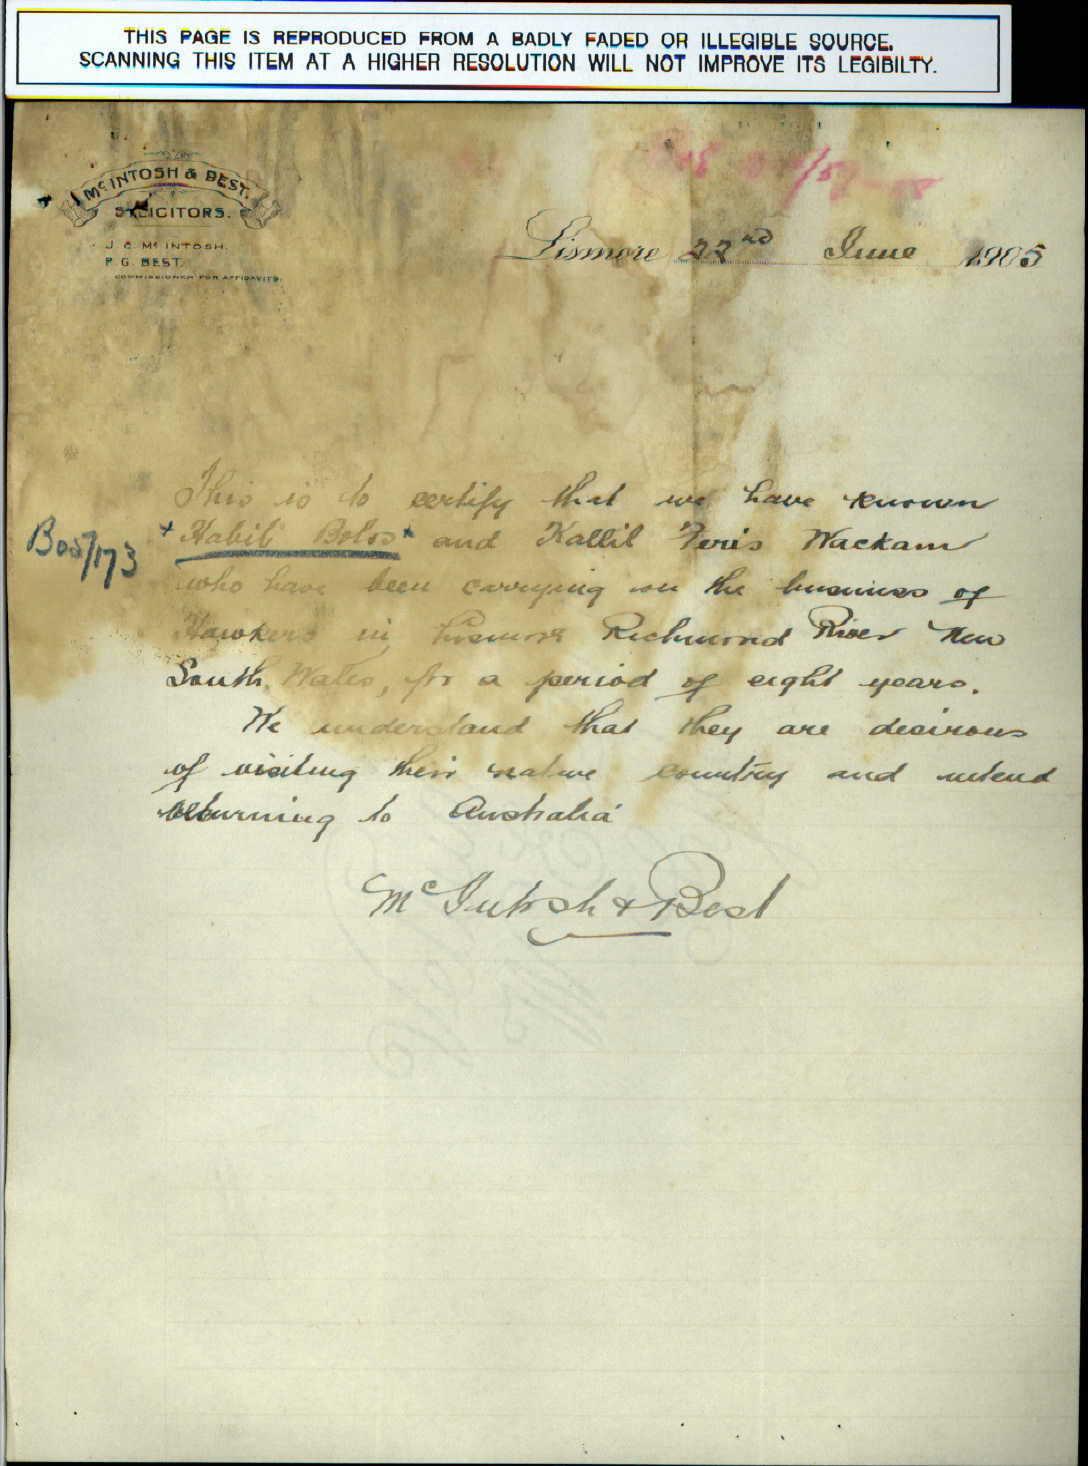 THIS PAGE IS REPRODUCED FROM A BADLY FADED OR ILLEGIBLE SOURCE.
SCANNING THIS ITEM AT A HIGHER RESOLUTION WILL NOT IMPROVE ITS LEGIBILTY.
Mc INTOSH & BEST.
SOLICITORS.
J. C. Mc INTOSH.
P. G. BEST.
COMMISSIONER FOR AFFIDAVITS.
Lismore 22nd June 1905
This is to certify that we have known
B05/173 + Habib Bolos + and Kallil Feris Wackam
who have been carrying on the business of
Hawkers in Lismore Richmond River New
South Wales, for a period of eight years.
We understand that they are desirous
of visiting their native country and intend
returning to Australia
McIntosh & Best